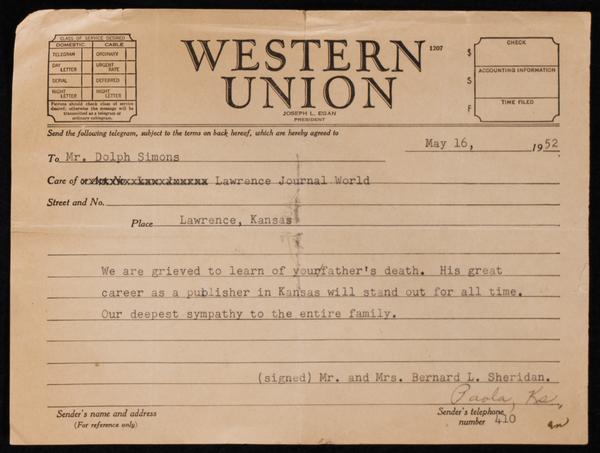 CLASS OF SERVICE DESIRED
DOMESTIC CABLE
TELEGRAM ORDINARY
DAY LETTER URGENT RATE
SERIAL DEFERRED
NIGHT LETTER NIGHT LETTER
Patrons should check class of service
desired; otherwise the message will be
transmitted as a telegram or
ordinary cablegram.
WESTERN
UNION
1207
JOSEPH L. EGAN
PRESIDENT
$
S
F
CHECK
ACCOUNTING INFORMATION
TIME FILED
Send the following telegram, subject to the terms on back hereof, which are hereby agreed to
May 16, 1952
To Mr. Dolph Simons
Care of or Apt. No. Lawrence Journal World
Street and No.
Place Lawrence, Kansas
We are grieved to learn of your father's death. His great
career as a publisher in Kansas will stand out for all time.
Our deepest sympathy to the entire family.
(signed) Mr. and Mrs. Bernard L. Sheridan.
Paola, Ks.
Sender's name and address
(For reference only)
Sender's telephone
number 410